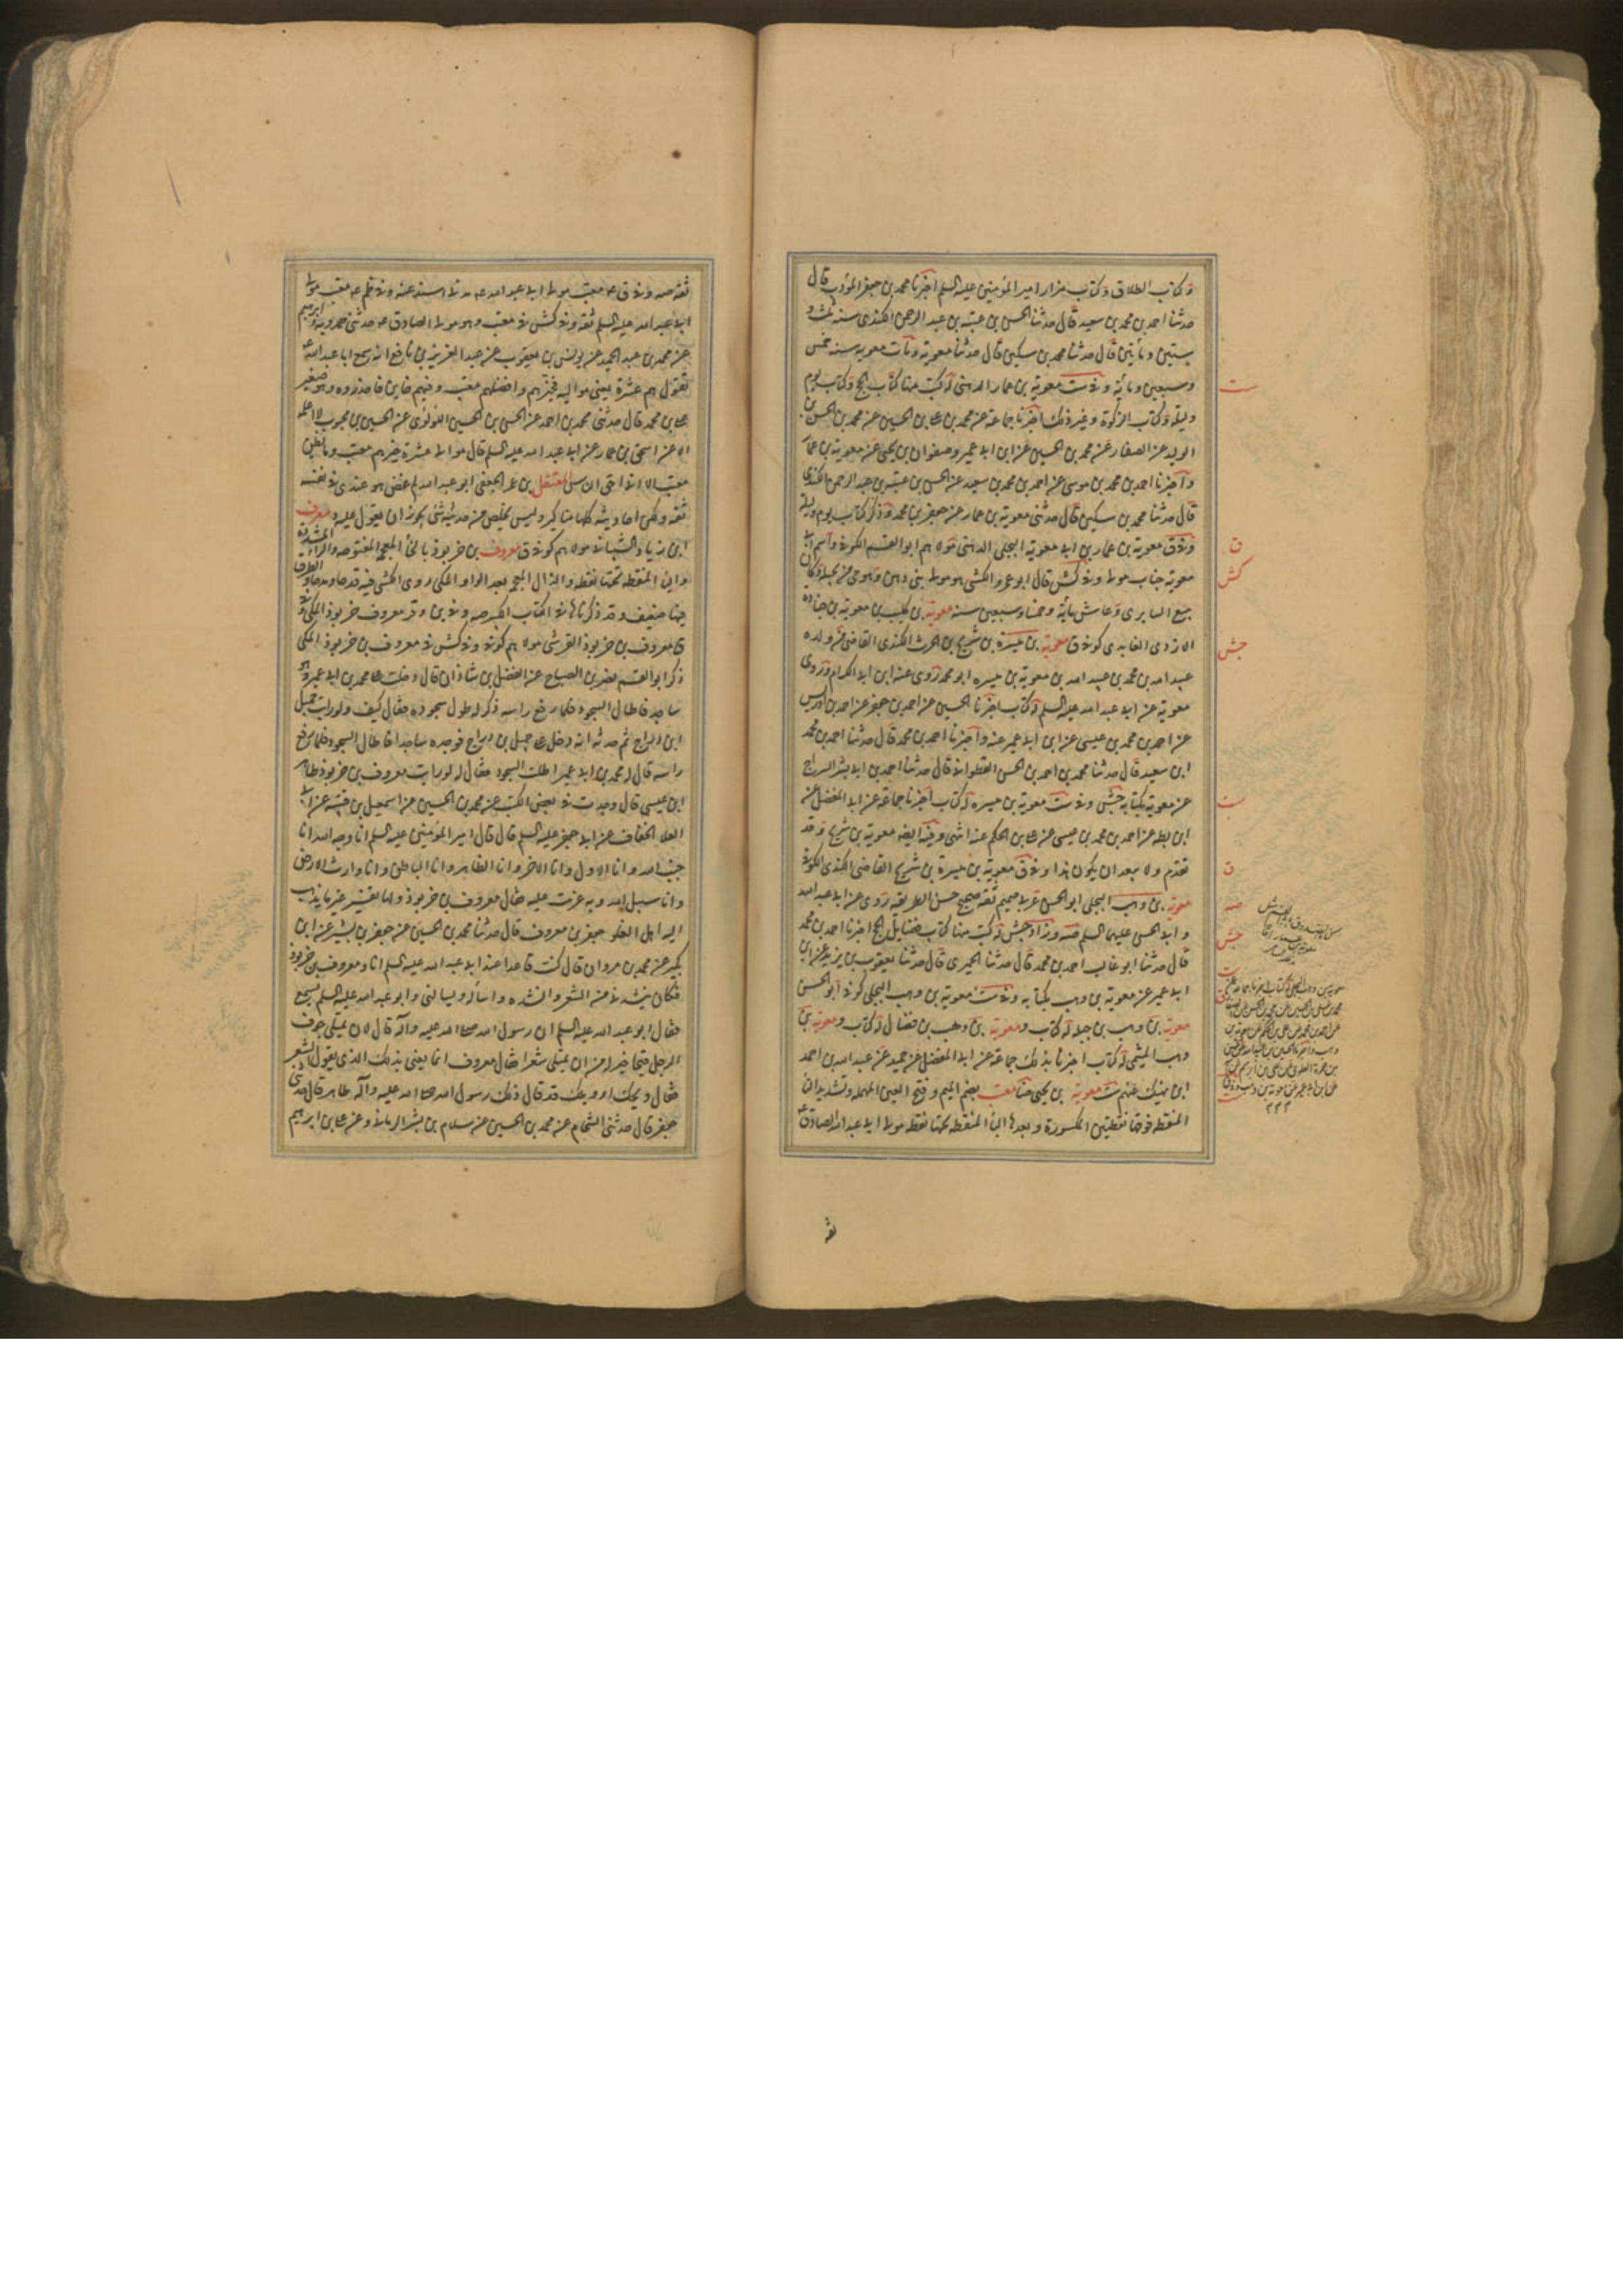 و كتاب الطلاق و كتاب مزار امير المؤمنين عليه السلم اخبرنا محمد بن جعفر المؤدب قال
حدثنا احمد بن محمد بن سعيد قال حدثنا الحسن بن عتبة بن عبد الرحمن الكندى سنة ثلث و
ستين و مأيتين قال حدثنا محمد بن سكين قال حدثنا معوية و مات معوية سنة خمس
و سبعين و مائة و فى ست معوية بن عمار الدهنى له كتب منها كتاب الحج و كتاب يوم
و ليلة و كتاب الزكوة و غير ذلك اخبرنا جماعة عن محمد بن على بن الحسين عن محمد بن الحسن بن
الوليد عن الصفار عن محمد بن الحسين عن ابن ابى عمير و صفوان بن يحيى عن معوية بن عمار
و اخبرنا احمد بن محمد بن موسى عن احمد بن محمد بن سعيد عن الحسن بن عتبة بن عبد الرحمن الكندى
قال حدثنا محمد بن سكين قال حدثنى معوية بن عمار عن جعفر بن محمد و ذكر كتاب يوم و ليلة
و فى ق معوية بن عمار بن ابى معوية البجلى الدهنى مولاهم ابو القسم الكوفى و اسم ابى
معوية خباب مولا و فى كش قال ابو عمرو الكشى هو مولى بنى دهن و هو حى من بجيلة و كان
يبيع السابرى و عاش مأية و خمسا و سبعين سنة معوية بن كليب معوية بن جنادة
الازدى الغامدى كوفى ق معوية بن ميسرة بن شريح بن الحرث الكندى القاضى من ولده
عبد الله بن محمد بن عبيد الله بن معوية بن ميسره ابو محمد روى عنه ابن ابى الكرام و روى
معوية عن ابى عبد الله عليه السلم و كتاب اخبرنا الحسين عن احمد بن جعفر عن احمد بن ادريس
عن احمد بن محمد بن عيسى عن ابن ابى عمير عنه و اخبرنا احمد بن محمد قال حدثنا احمد بن محمد
ابن سعيد قال حدثنا محمد بن احمد بن الحسن القطوانى قال حدثنا احمد بن ابى بشر السراج
عن معوية بكتابه جش و فى ست معوية بن ميسره له كتاب اخبرنا جماعة عن ابى المفضل عن
ابن بطة عن احمد بن محمد بن عيسى عن على بن الحكم عنه انتهى و فيه ايضا معوية بن شريح و قد
تقدم و لا يبعد ان يكون هذا و فى ق معوية بن ميسرة بن شريح القاضى الكندى الكوفى
معوية بن وهب البجلى ابو الحسن عربى صميم ثقة صحيح حسن الطريقة روى عن ابى عبد الله
و ابى الحسن عليهما السلم صه و زاد جش له كتب منها كتاب فضايل الحج اخبرنا احمد بن محمد
قال حدثنا ابو غالب احمد بن محمد قال حدثنا الحميرى قال حدثنا يعقوب بن يزيد عن ابن
ابى عمير عن معوية بن وهب بكتابه و فى ست معوية بن وهب البجلى كوفى ابو الحسن
معوية بن وهب بن جبلة له كتاب و معوية بن وهب بن فضال له كتاب و معوية بن
وهب الميثمى له كتاب اخبرنا بذلك جماعة عن ابى المفضل عن حميد عن عبيد الله بن احمد
ابن نهيك عنهم ست معوية بن يحيى ضا معتب بضم الميم و فتح العين المهملة و تشديد التا
المنقطة فوقها نقطتين المكسورة و بعدها البا المنقطة تحتها نقطة مولى ابى عبد الله الصادق ع
ست
ق
كش
جش
ست
ق
صه
جش
ثقة
ثقة صه و فى ق معتب مولى ابى عبد الله عه مدنى اسند عنه و فى ظم عه معتب مولى
ابى عبد الله عليه السلم ثقة و فى كش فى معتب و هو مولى الصادق عه حدثنى حمدويه و ابرهيم
عن محمد بن عبد الحميد عن يونس بن يعقوب عن عبد العزيز بن نافع انه سمع ابا عبد الله ع
يقول هم عشرة يعنى مواليه فخيرهم و افضلهم معتب و فيهم خاين فاحذروه و هو صغير
على بن محمد قال حدثنى محمد بن احمد عن الحسن بن الحسين اللؤلؤى عن الحسين بن محبوب لا اعلمه
الا عن اسحق بن عمار عن ابى عبد الله عليه السلم قال موالى عشرة خيرهم معتب و ما يظن
معتب الا انى اسحى الناس المعتقل بن عمر الجعفى ابو عبد الله لم عض هو عندى فى نفسه
ثقة و لكن احاديثه كلها مناكير و ليس يخلص من حديثه شئ يجوز ان يعول عليه معرف
ابن زياد الشيبانى مولاهم كوفى ق معروف بن خربوذ بالخا المعجمة المفتوحة و الرا المشددة
و البا المنقطة تحتها نقطة و الذال المعجمة بعد الواو المكى روى الكشى فيه قدحا و مدحا و الطرق
فيها ضعيف و قد ذكرناها فى الكتاب الكبير صه و فى ين و قر معروف خربوذ المكى و فى
ق معروف بن خربوذ القرشى مولاهم كوفى و فى كش فى معروف بن خربوذ المكى
ذكر ابو القسم نصر بن الصباح عن الفضل بن شاذان قال دخلت على محمد بن ابى عمير و هو
ساجد فاطال السجود فلما رفع راسه ذكر له طول سجوده فقال كيف و لو رايت جميل
ابن دراج ثم حدثه انه دخل على جميل بن دراج فوجده ساجدا فاطال السجود فلما رفع
راسه قال له محمد بن ابى عمير اطلت السجود فقال له لو رايت معروف بن خربوذ طاهر
ابن عيسى قال وجدت فى بعض الكتب عن محمد بن الحسين عن اسمعيل بن قتيبة عن ابى
العلا الخفاف عن ابى جعفر عليه السلم قال قال امير المؤمنين عليه السلم انا وجه الله انا
جنب الله و انا الاول و انا الاخر و انا الظاهر و انا الباطن و انا وارث الارض
و انا سبيل الله و به عزمت عليه فقال معروف بن خربوذ و لها تفسير غير ما يذهب
اليه اهل الغلو جعفر بن معروف قال حدثنا محمد بن الحسين عن جعفر بن بشير عن ابن
بكير عن محمد بن مروان قال كنت قاعدا عند ابى عبد الله عليه السلم انا و معروف بن خربوذ
فكان ينشدنى الشعر و انشده و اسأله و يسالنى و ابو عبد الله عليه السلم يسمع
فقال ابو عبد الله عليه السلم ان رسول الله صلى الله عليه و آله قال لان يمتلى جوف
الرجل قيحا خير له من ان يمتلى شعرا فقال معروف انما يعنى بذلك الذى يقول الشعر
فقال ويحك او ويلك قد قال ذلك رسول الله صلى الله عليه و آله طاهر قال حدثنى
جعفر قال حدثنى الشجاعى عن محمد بن الحسين عن سلام بن بشر الرمانى و عن على بن ابرهيم